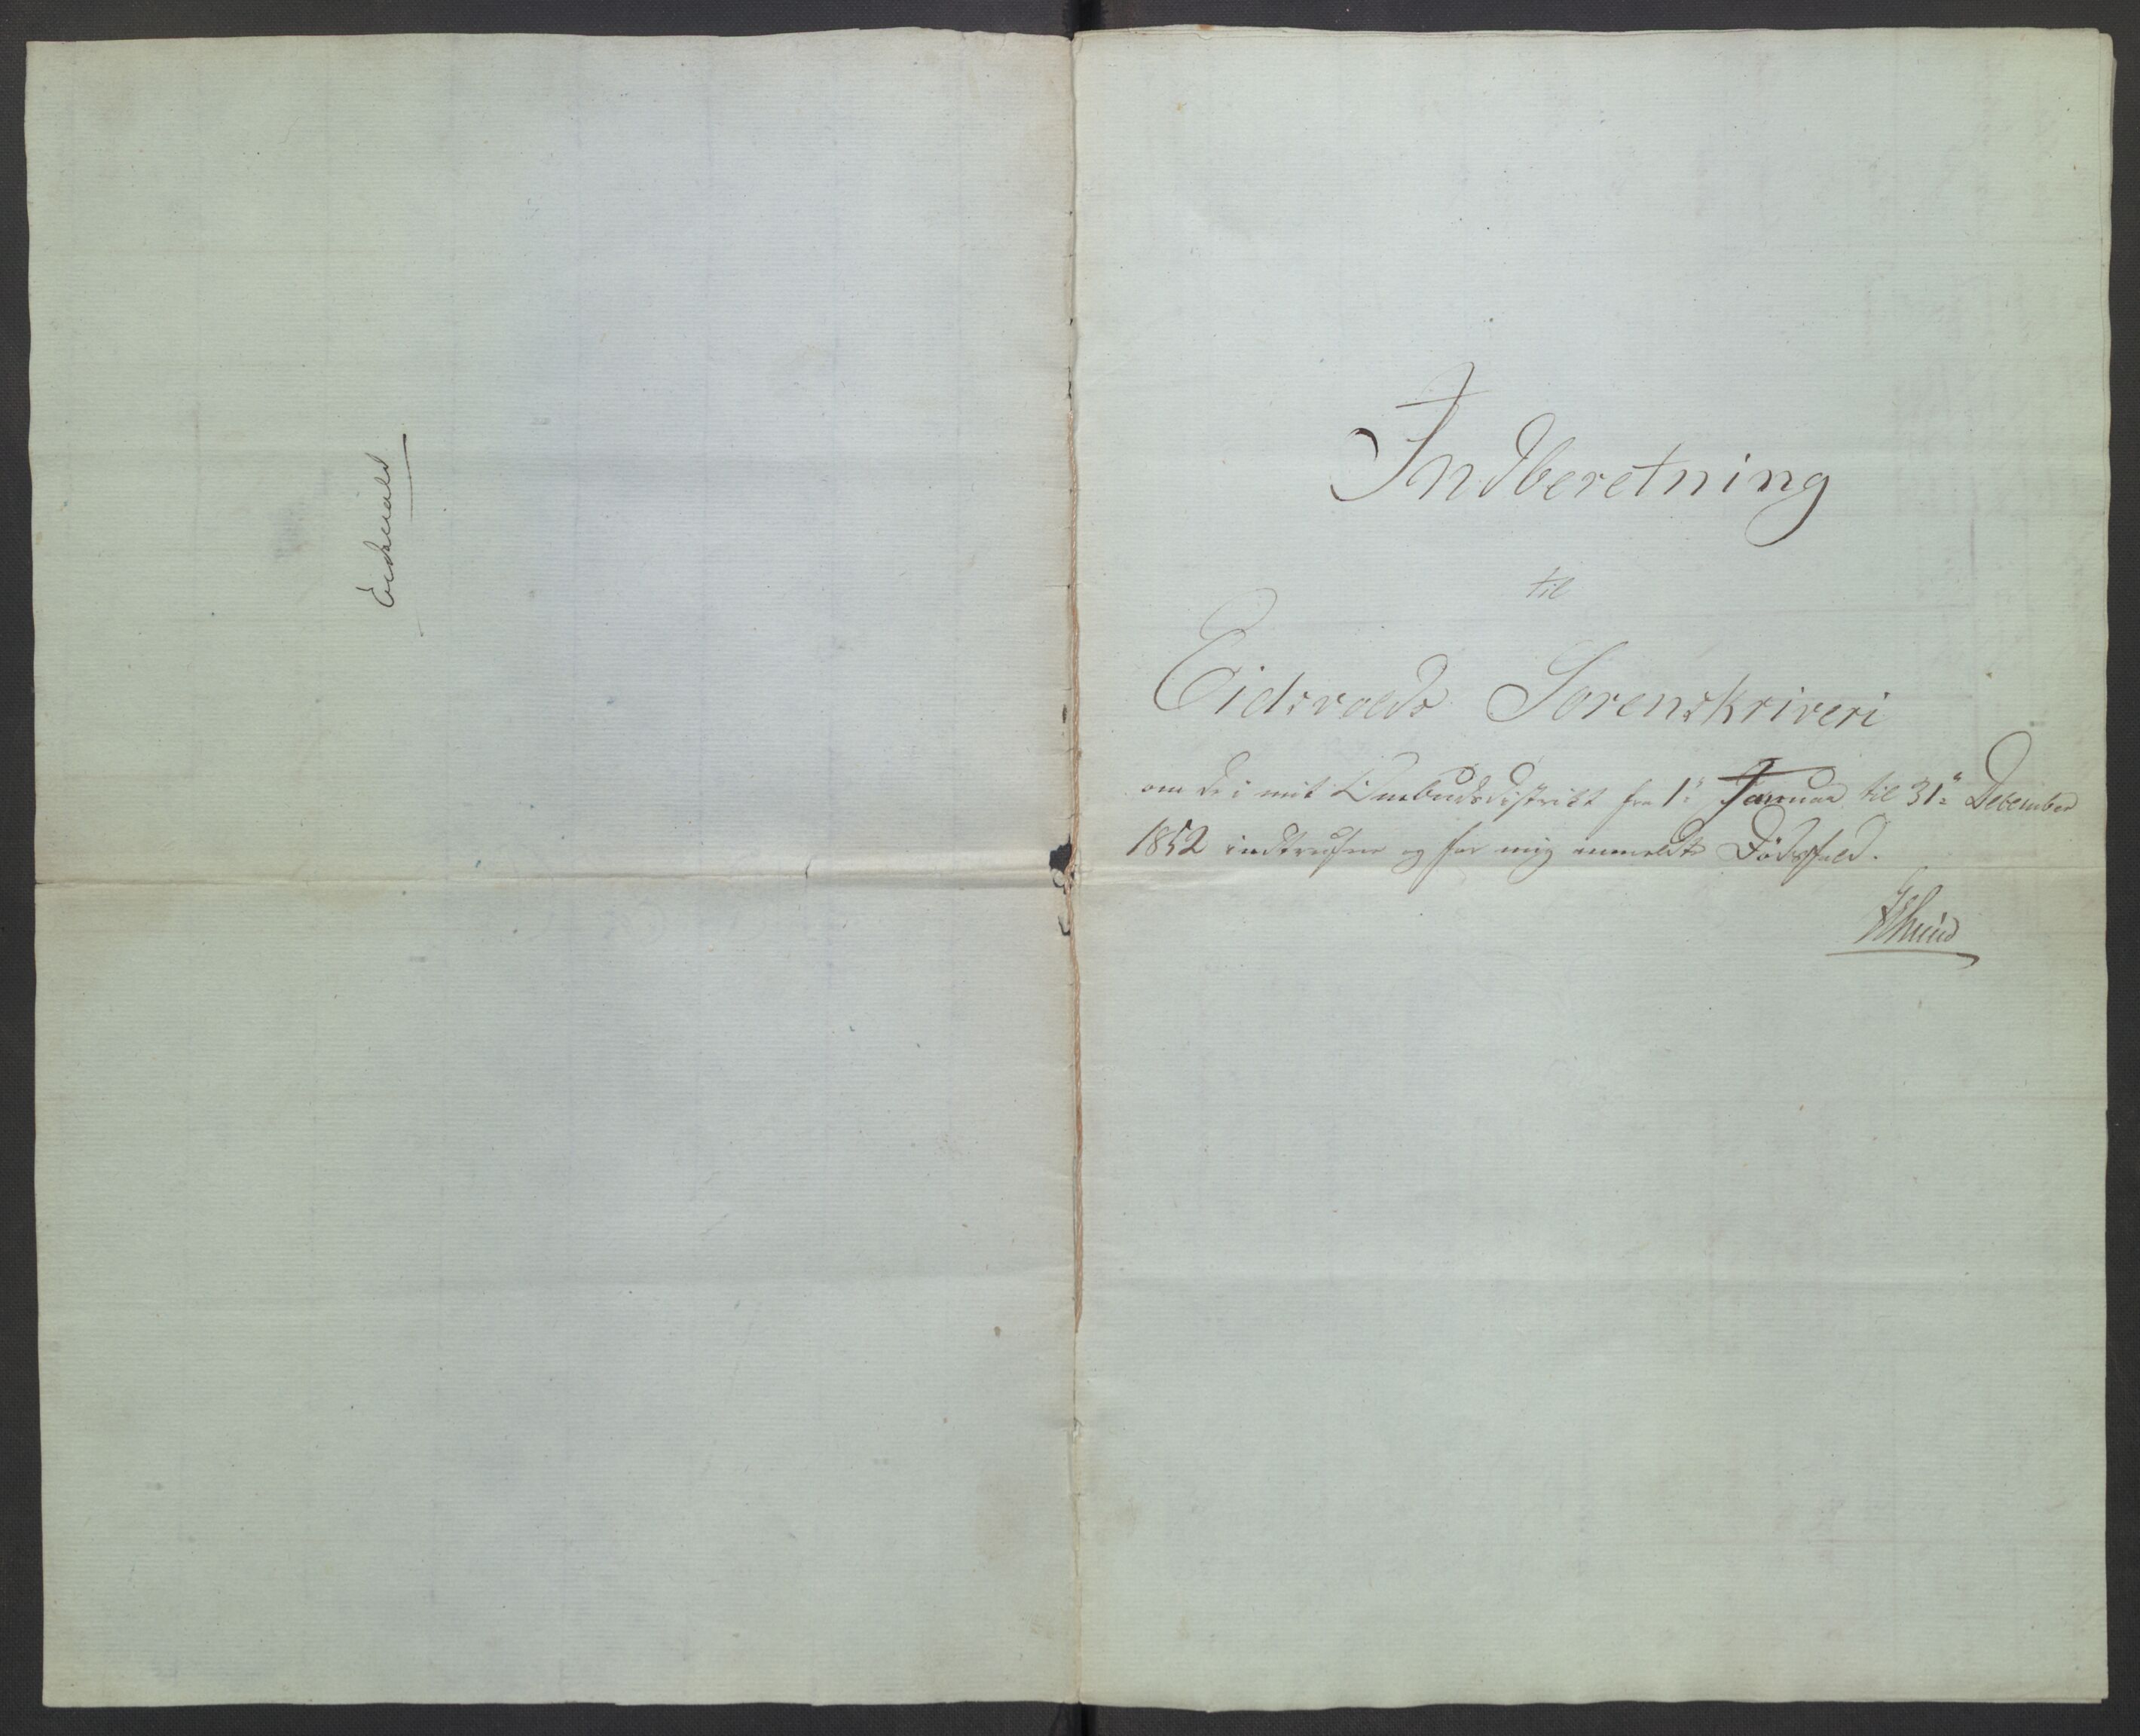 Eidsvold
Indberetning
til
Eidsvolds Sorenskriveri
om de i mit Ombudsdistrikt fra 1ste Januar til 31te December
1852 indtrufne og for mig anmeldte Dödsfald.